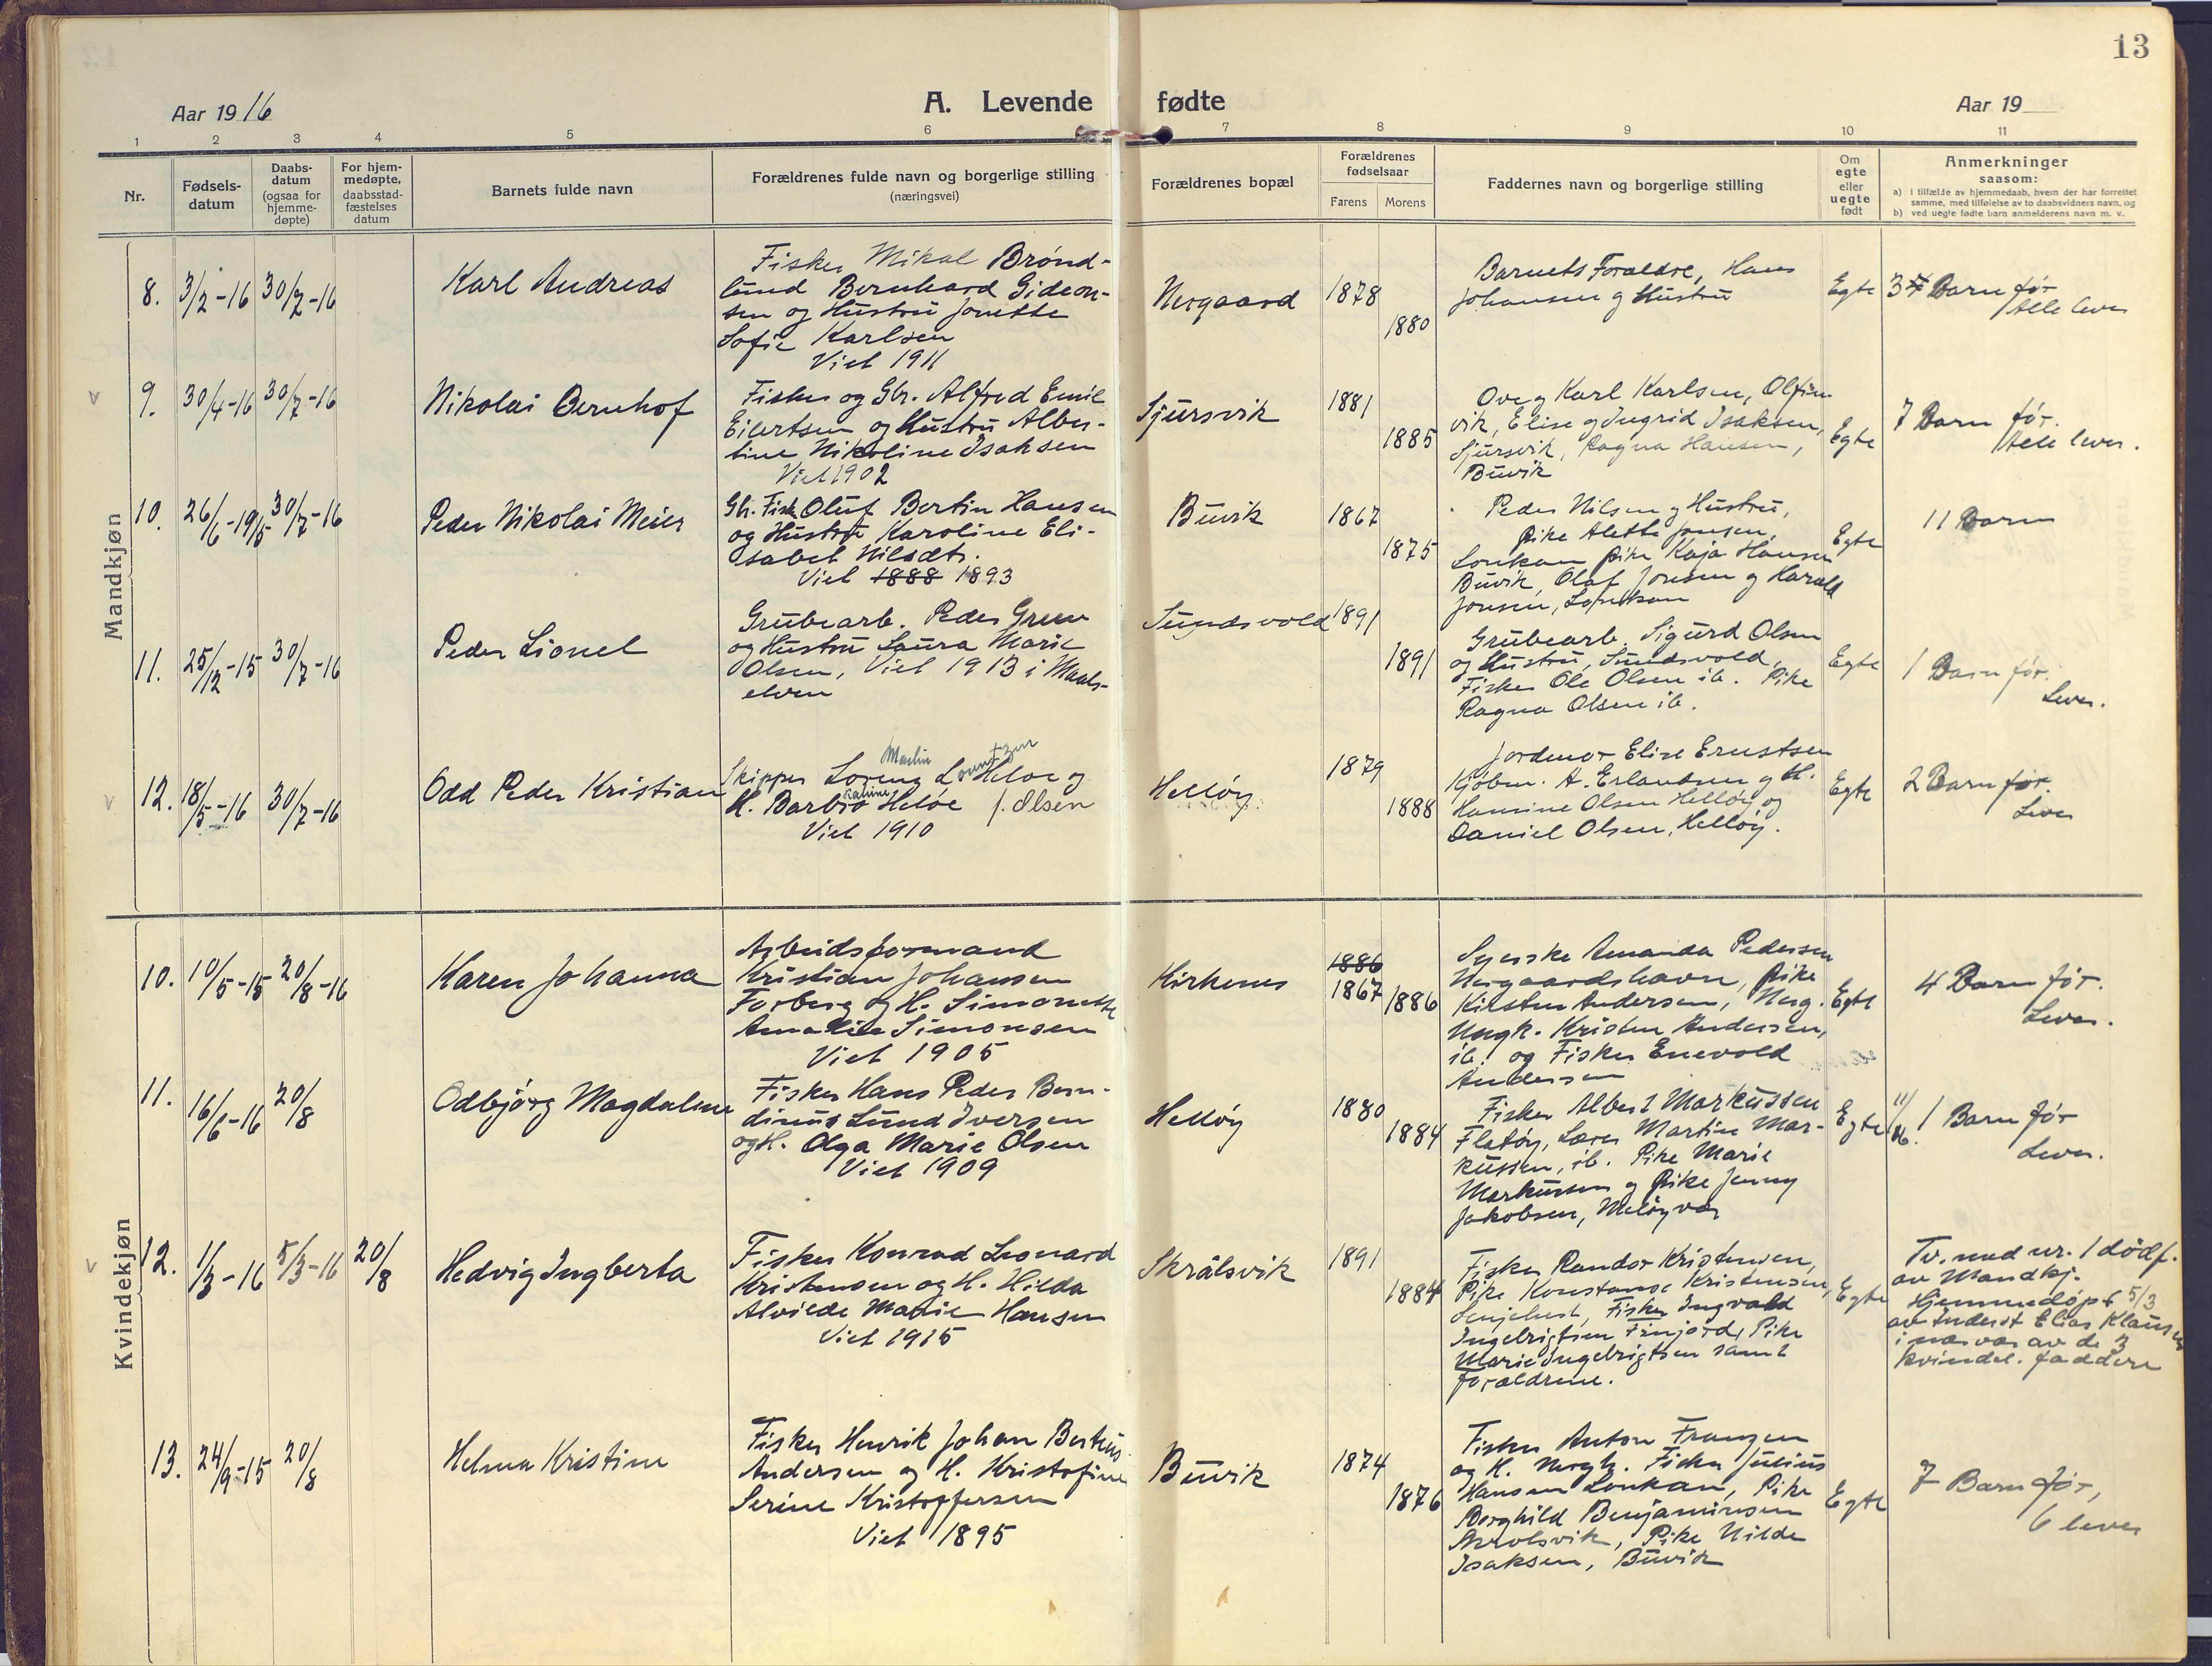 13
Aar 1916
A. Levende fødte
Aar 19
1 2 3 4 5 6 7 8 9 10 11
Nr.
Fødsels-
datum
Daabs-
datum
(ogsaa for
hjemme-
døpte)
For hjem-
medøpte,
daabsstad-
fæstelses
datum
Barnets fulde navn
Forældrenes fulde navn og borgerlige stilling
(næringsvei)
Forældrenes bopæl
Forældrenes
fødselsaar
Farens Morens
Faddernes navn og borgerlige stilling
Om
egte
eller
uegte
født
Anmerkninger
saasom:
a) i tilfælde av hjemmedaab, hvem der har forrettet
samme, med tilføielse av to daabsvidners navn, og
b) ved uegte fødte barn anmelderens navn m. v.
Mandkjøn
8. 3/2-16 30/7-16
Karl Andreas
Fisker Mikal Brønd-
lund Bernhard Gideon-
sen og Hustru Jonette
Sofie Karlsen
Viet 1911
Nergaard
1878
1880
Barnets Forældre, Hans
Johansen og Hustru
Egte
3 Barn før
Alle lever
9. 30/4-16 30/7-16
Nikolai Bernhof
Fisker og Gbr. Alfred Emil
Eilertsen og Hustru Alber-
tine Nikoline Isaksen
Viet 1902
Sjursvik
1881
1885
Ove og Karl Karlsen,
vik, Elise og Ingrid Isaksen,
Sjursvik, Ragna Hansen,
Buvik
Egte
7 Barn før.
Alle lever.
10. 26/6-1915 30/7-16
Peder Nikolai Meier
Gbr. Fisk. Oluf Bertin Hansen
og Hustru Karoline Eli-
sabet Nilsdt.
Viet 1888 1893
Buvik
1867
1875
Peder Nilsen og Hustru,
Pike Alette Jonsen,
Lonkan Pike Kaja Hansen
Buvik, Olaf Jonsen og Harald
Jonsen, Lonkan
Egte
11 Barn
11. 25/12-15 30/7-16
Peder Lionel
Grubearb. Peder Green
og Hustru Laura Marie
Olsen, Viet 1913 i Maals-
elven
Sundsvold
1891
1891
Grubearb. Sigurd Olsen
og Hustru, Sundsvold,
Fisker Ole Olsen ib. Pike
Ragna Olsen ib.
Egte
1 Barn før.
Lever.
12. 18/5-16 30/7-16
Odd Peder Kristian
Martin
Skipper Lorens Heløe og
H. Barbro Heløe f. Olsen
Viet 1910
Helløy
1879
1888
Jordmor Elise Ernstsen
Kjøbm. A. Erlandsen og H.
Hansine Olsen Helløy og
Daniel Olsen, Helløy.
Egte
2 Barn før.
Lever
Kvindekjøn
10. 10/5-15 20/8-16
Karen Johanna
Arbeidsformand
Kristian Johansen
Forberg og H. Simonette
Amalie Simonsen
Viet 1905
Kirkenes
1886
1867
1886
Syerske Amanda Pedersen
Nergaardshavn, Pike
Kirsten Andersen, Nerg.
Ungk. Kristen Andersen,
ib. og Fisker Enevold
Andersen
Egte
4 Barn før.
Lever.
11. 16/6-16 20/8
Odbjørg Magdalene
Fisker Hans Peder Bern-
dinus Lund Iversen
og H. Olga Marie Olsen
Viet 1909
Helløy
1880
1884
Fisker Albert Markussen
Flatøy, Lærer Martin Mar-
kussen, ib. Pike Marie
Markussen og Pike Jenny
Jakobsen, Meløyvær
Egte
1 Barn før
Lever.
12. 1/3-16 5/3-16 20/8
Hedvig Ingberta
Fisker Konrad Leonard
Kristensen og H. Hilda
Alvilde Marie Hansen
Viet 1915
Skrålsvik
1891
1884
Fisker Randor Kristensen,
Pike Konstanse Kristensen,
Senjehest, Fisker Ingvald
Ingebrigtsen Finjord, Pike
Marie Ingebrigtsen samt
forældrene.
Egte
Tv. med nr. 1 dødf.
av Mandkj.
Hjemmedøpt 5/3
av Inderst Elias Klausen
i nærvær av de 3
kvindel. faddere
13. 24/9-15 20/8
Helma Kristine
Fisker Henrik Johan Berteus
Andersen og H. Kristofine
Serine Kristoffersen
Viet 1895
Buvik
1874
1876
Fisker Anton Franzen
og H. Fisker Julius
Hansen Lonkan, Pike
Borghild Benjaminsen
Skrolsvik, Pike Hilda
Isaksen, Buvik
Egte
7 Barn før,
6 lever